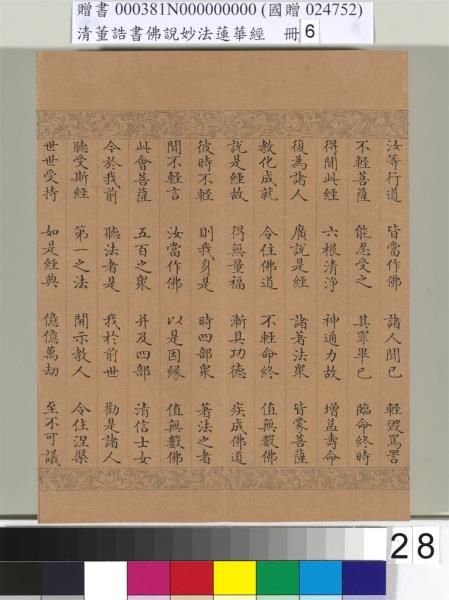 贈書 000381N000000000 (國贈 024752)
清董誥書佛說妙法蓮華經 冊 6
汝等行道 皆當作佛 諸人聞已 輕毀罵詈
不輕菩薩 能忍受之 其罪畢已 臨命終時
得聞此經 六根清淨 神通力故 增益壽命
復為諸人 廣說是經 諸著法眾 皆蒙菩薩
教化成就 令住佛道 不輕命終 值無數佛
說是經故 得無量福 漸具功德 疾成佛道
彼時不輕 則我身是 時四部眾 著法之者
聞不輕言 汝當作佛 以是因緣 值無數佛
此會菩薩 五百之眾 并及四部 清信士女
今於我前 聽法者是 我於前世 勸是諸人
聽受斯經 第一之法 開示教人 令住涅槃
世世受持 如是經典 億億萬劫 至不可議
28